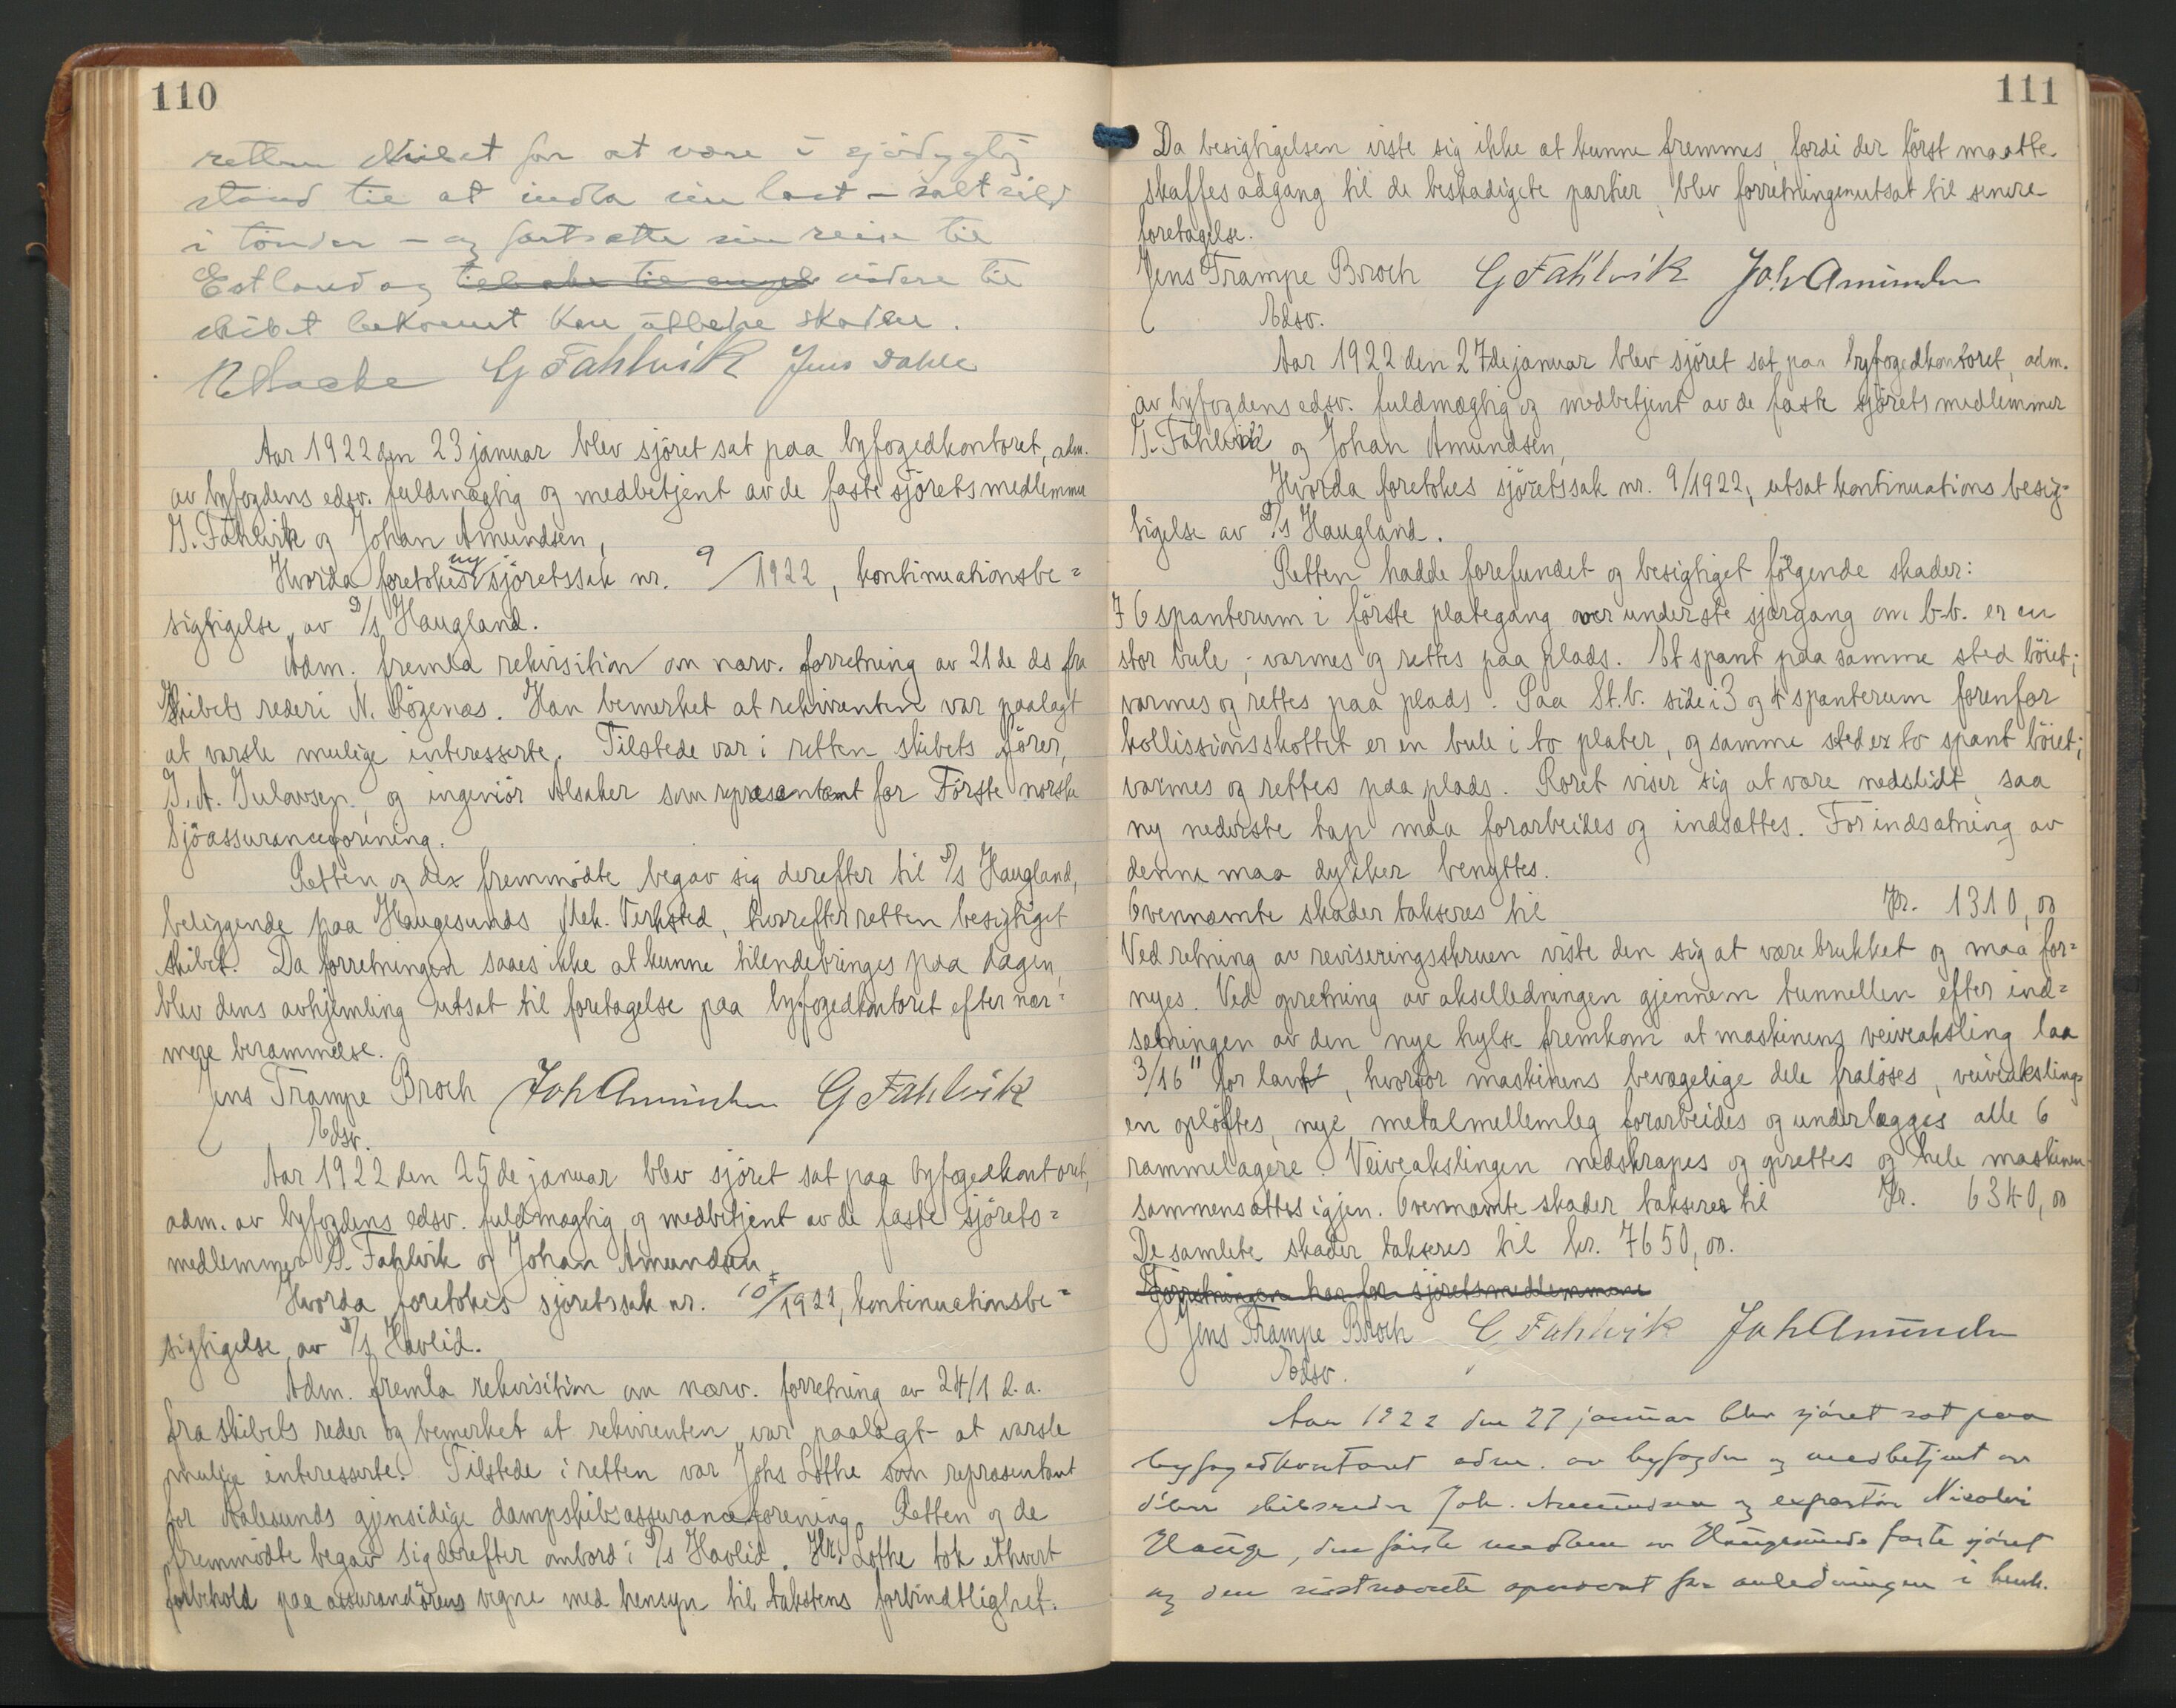 110
retten skibet for at være i sjødygtig
stand til at indta sin last - saltsild
i tönder - og fortsætte sin reise til
Estland og videre til
skibet bekvemt kan utbedre skaden.
G Fahlvik Jens Dahle
Aar 1922 den 23 januar blev sjöret sat paa byfogedkontoret, adm.
av byfogdens edsv. fuldmægtig og medbetjent av de faste sjöretsmedlemmer
G. Fahlvik og Johan Amundsen,
Hvorda foretokes ny sjöretssak nr. 9/1922, kontinuationsbe=
sigtigelse av D/S Haugland.
Adm. fremla rekvisition om nærv. forretning av 21de ds fra
skibets rederi N. Rögenæs. Han bemerket at rekvirenten var paalagt
at varsle mulige interesserte. Tilstede var i retten skibets förer,
J. A. Gulovsen, og ingeniör Alsaker som repræsentant for Förste norske
Sjöassuranceforening.
Retten og de fremmödte begav sig derefter til D/S Haugland,
beliggende paa Haugesunds Mek. Verksted, hvorefter retten besigtiget
skibet. Da forretningen saaes ikke at kunne tilendebringes paa dagen,
blev dens avhjemling utsat til foretagelse paa byfogedkontoret efter nær=
mere berammelse.
Jens Trampe Broch Joh Amundsen G Fahlvik
Edsv.
Aar 1922 den 25de januar blev sjöret sat paa byfogedkontoret,
adm. av byfogdens edsv. fuldmægtig og medbetjent av de faste sjörets=
medlemmer G. Fahlvik og Johan Amundsen
Hvorda foretokes sjöretssak nr. 10/1922, kontinuationsbe=
sigtigelse av D/S Havlid.
Adm. fremla rekvisition om nærv. forretning av 24/1 d.a.
fra skibets reder og bemerket at rekvirenten var paalagt at varsle
mulige interesserte. Tilstede i retten var Johs Lothe som repræsentant
for Aalesunds gjensidige dampskibsassuranceforening. Retten og de
fremmödte begav sig derefter ombord i D/S Havlid. Hr. Lothe tok ethvert
forbehold paa assurandörens vegne med hensyn til takstens forbindtlighet.
111
Da besigtigelsen viste sig ikke at kunne fremmes, fordi der först maatte
skaffes adgang til de beskadigete partier, blev forretningen utsat til senere
foretagelse.
Jens Trampe Broch G Fahlvik Joh Amundsen
Edsv.
Aar 1922 den 27de januar blev sjöret sat paa byfogedkontoret, adm.
av byfogdens edsv. fuldmægtig og medbetjent av de faste sjöretsmedlemmer
G. Fahlvik og Johan Amundsen,
Hvorda foretokes sjöretssak nr. 9/1922, utsat kontinuations besig=
tigelse av D/S Haugland.
Retten hadde forefundet og besigtiget fölgende skader:
I 6 spanterum i förste plategang over underste sjærgang om b.b. er en
stor bule; varmes og rettes paa plads. Et spant paa samme sted böiet;
varmes og rettes paa plads. Paa St.b. side i 3 og 4 spanterum forenfor
kollissionsskottet er en bule i to plater, og samme sted er to spant böiet;
varmes og rettes paa plads. Roret viser sig at være nedslidt, saa
ny nederste tap maa forarbeides og indsættes. For indsætning av
denne maa dykker benyttes.
Ovennæmte skader takseres til Kr. 1310,00
Ved retning av reviseringsskruen viste den sig at være brukket og maa for=
nyes. Ved opretning av akselledningen gjennem tunnellen efter ind=
sætningen av den nye hylse fremkom at maskinens veivaksling laa
3/16" for lavt, hvorfor maskinens bevægelige dele fralöses, veivaksling=
en oplöftes, nye metalmellemleg forarbeides og underlægges alle 6
rammelagere. Veivakslingen nedskrapes og oprettes og hele maskinen
sammensættes igjen. Ovennæmte skader takseres til Kr. 6340,00
De samlete skader takseres til kr. 7650,00.
Forretningen har for sjöretsmedlemmene
Jens Trampe Broch G Fahlvik Joh Amundsen
Edsv.
Aar 1922 den 27 januar blev sjöret sat paa
byfogedkontoret adm. av byfogden og medbetjent av
skibsreder Joh. Amundsen og exportör Nicolai
Hauge, den förste medlem av Haugesunds faste sjöret
og den sistnævnte opnævnt for anledningen i henh.